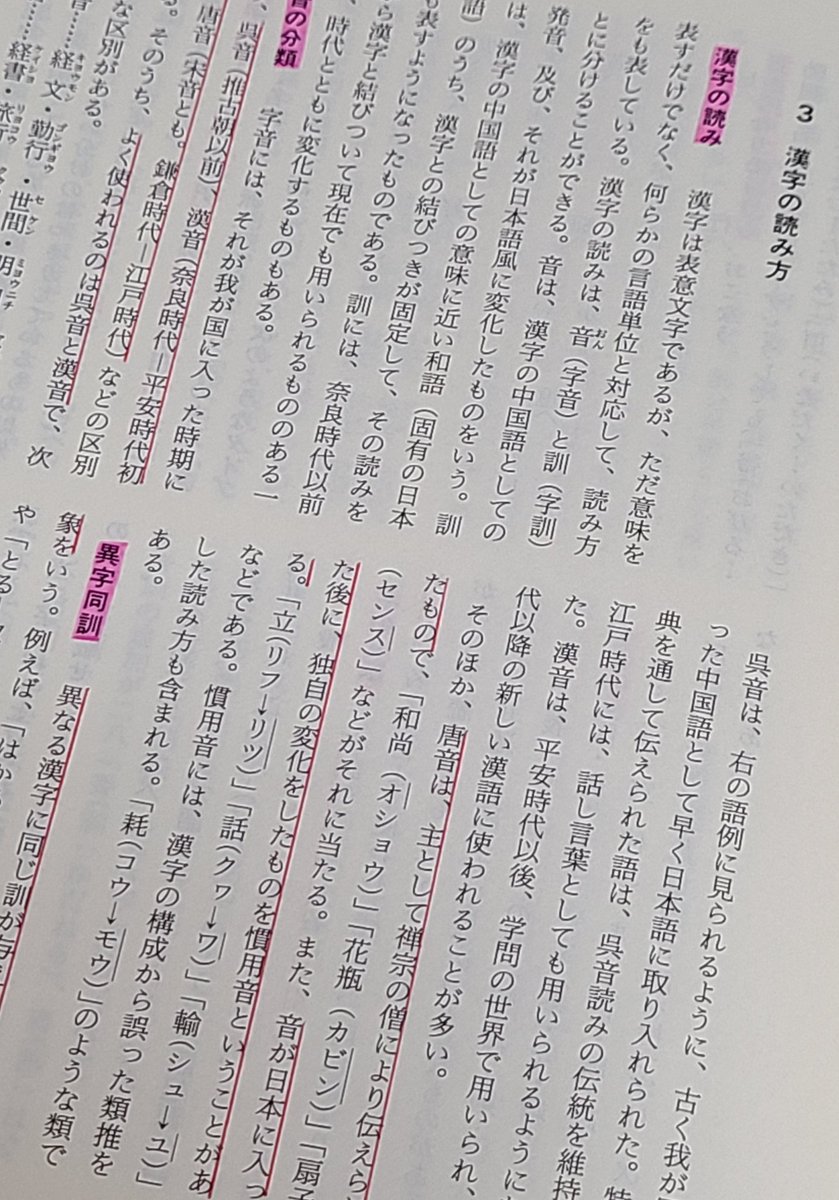 3 漢字の読み方
漢字の読み　漢字は表意文字であるが、ただ意味を
表すだけでなく、何らかの言語単位と対応して、読み方
をも表している。漢字の読みは、音(字音)と訓(字訓)
とに分けることができる。音は、漢字の中国語としての
発音、及び、それが日本語風に変化したものをいう。訓
は、漢字の中国語としての意味に近い和語(固有の日本
語)のうち、漢字との結びつきが固定して、その読みを
も表すようになったものである。訓には、奈良時代以前
ら漢字と結びついて現在でも用いられるもののある一
、時代とともに変化するものもある。
音の分類　字音には、それが我が国に入った時期に
、呉音(推古朝以前)、漢音(奈良時代―平安時代初
唐音(宋音とも。鎌倉時代―江戸時代)などの区別
る。そのうち、よく使われるのは呉音と漢音で、次
な区別がある。
……経文・勤行・世間・明
……経書・旅行
呉音は、右の語例に見られるように、古く我が
った中国語として早く日本語に取り入れられた。特
典を通して伝えられた語は、呉音読みの伝統を維持
江戸時代には、話し言葉としても用いられるように
た。漢音は、平安時代以後、学問の世界で用いられ、
代以降の新しい漢語に使われることが多い。
そのほか、唐音は、主として禅宗の僧により伝えら
たもので、「和尚(オショウ)」「花瓶(カビン)」「扇子
(センス)」などがそれに当たる。また、音が日本に入っ
た後に、独自の変化をしたものを慣用音ということがあ
る。「立(リフ→リツ)」「話(クヮ→ワ)」「輸(シュ→ユ)」
などである。慣用音には、漢字の構成から誤った類推を
した読み方も含まれる。「耗(コウ→モウ)」のような類で
ある。
異字同訓　異なる漢字に同じ訓が
象をいう。例えば、「はか
や「とる